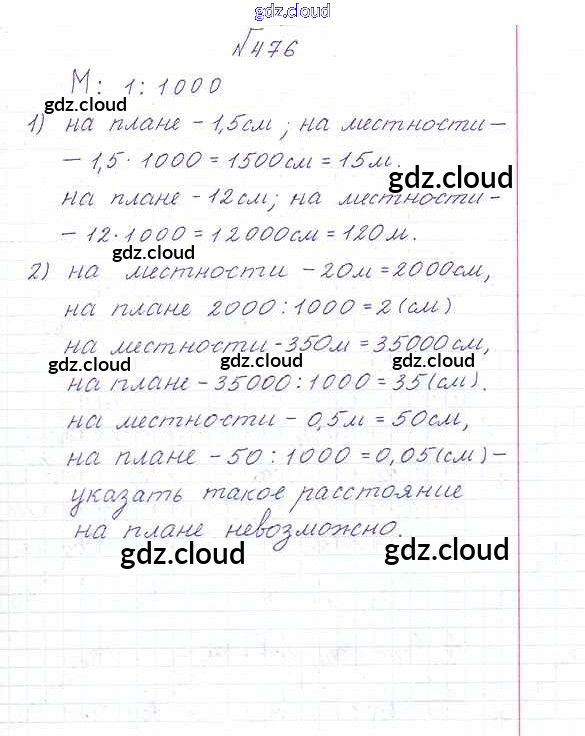 gdz.cloud
№476
М: 1:1000
gdz.cloud
1) на плане - 1,5см; на местности -
- 1,5 · 1000 = 1500см = 15м.
gdz.cloud
на плане - 12см; на местности -
- 12 · 1000 = 12000см = 120м.
gdz.cloud
2) на местности - 20м = 2000см,
на плане 2000 : 1000 = 2 (см)
на местности - 350м = 35000см,
gdz.cloud gdz.cloud gdz.cloud
на плане - 35000 : 1000 = 35 (см).
на местности - 0,5м = 50см,
на плане - 50 : 1000 = 0,05 (см) -
указать такое расстояние
на плане невозможно.
gdz.cloud gdz.cloud